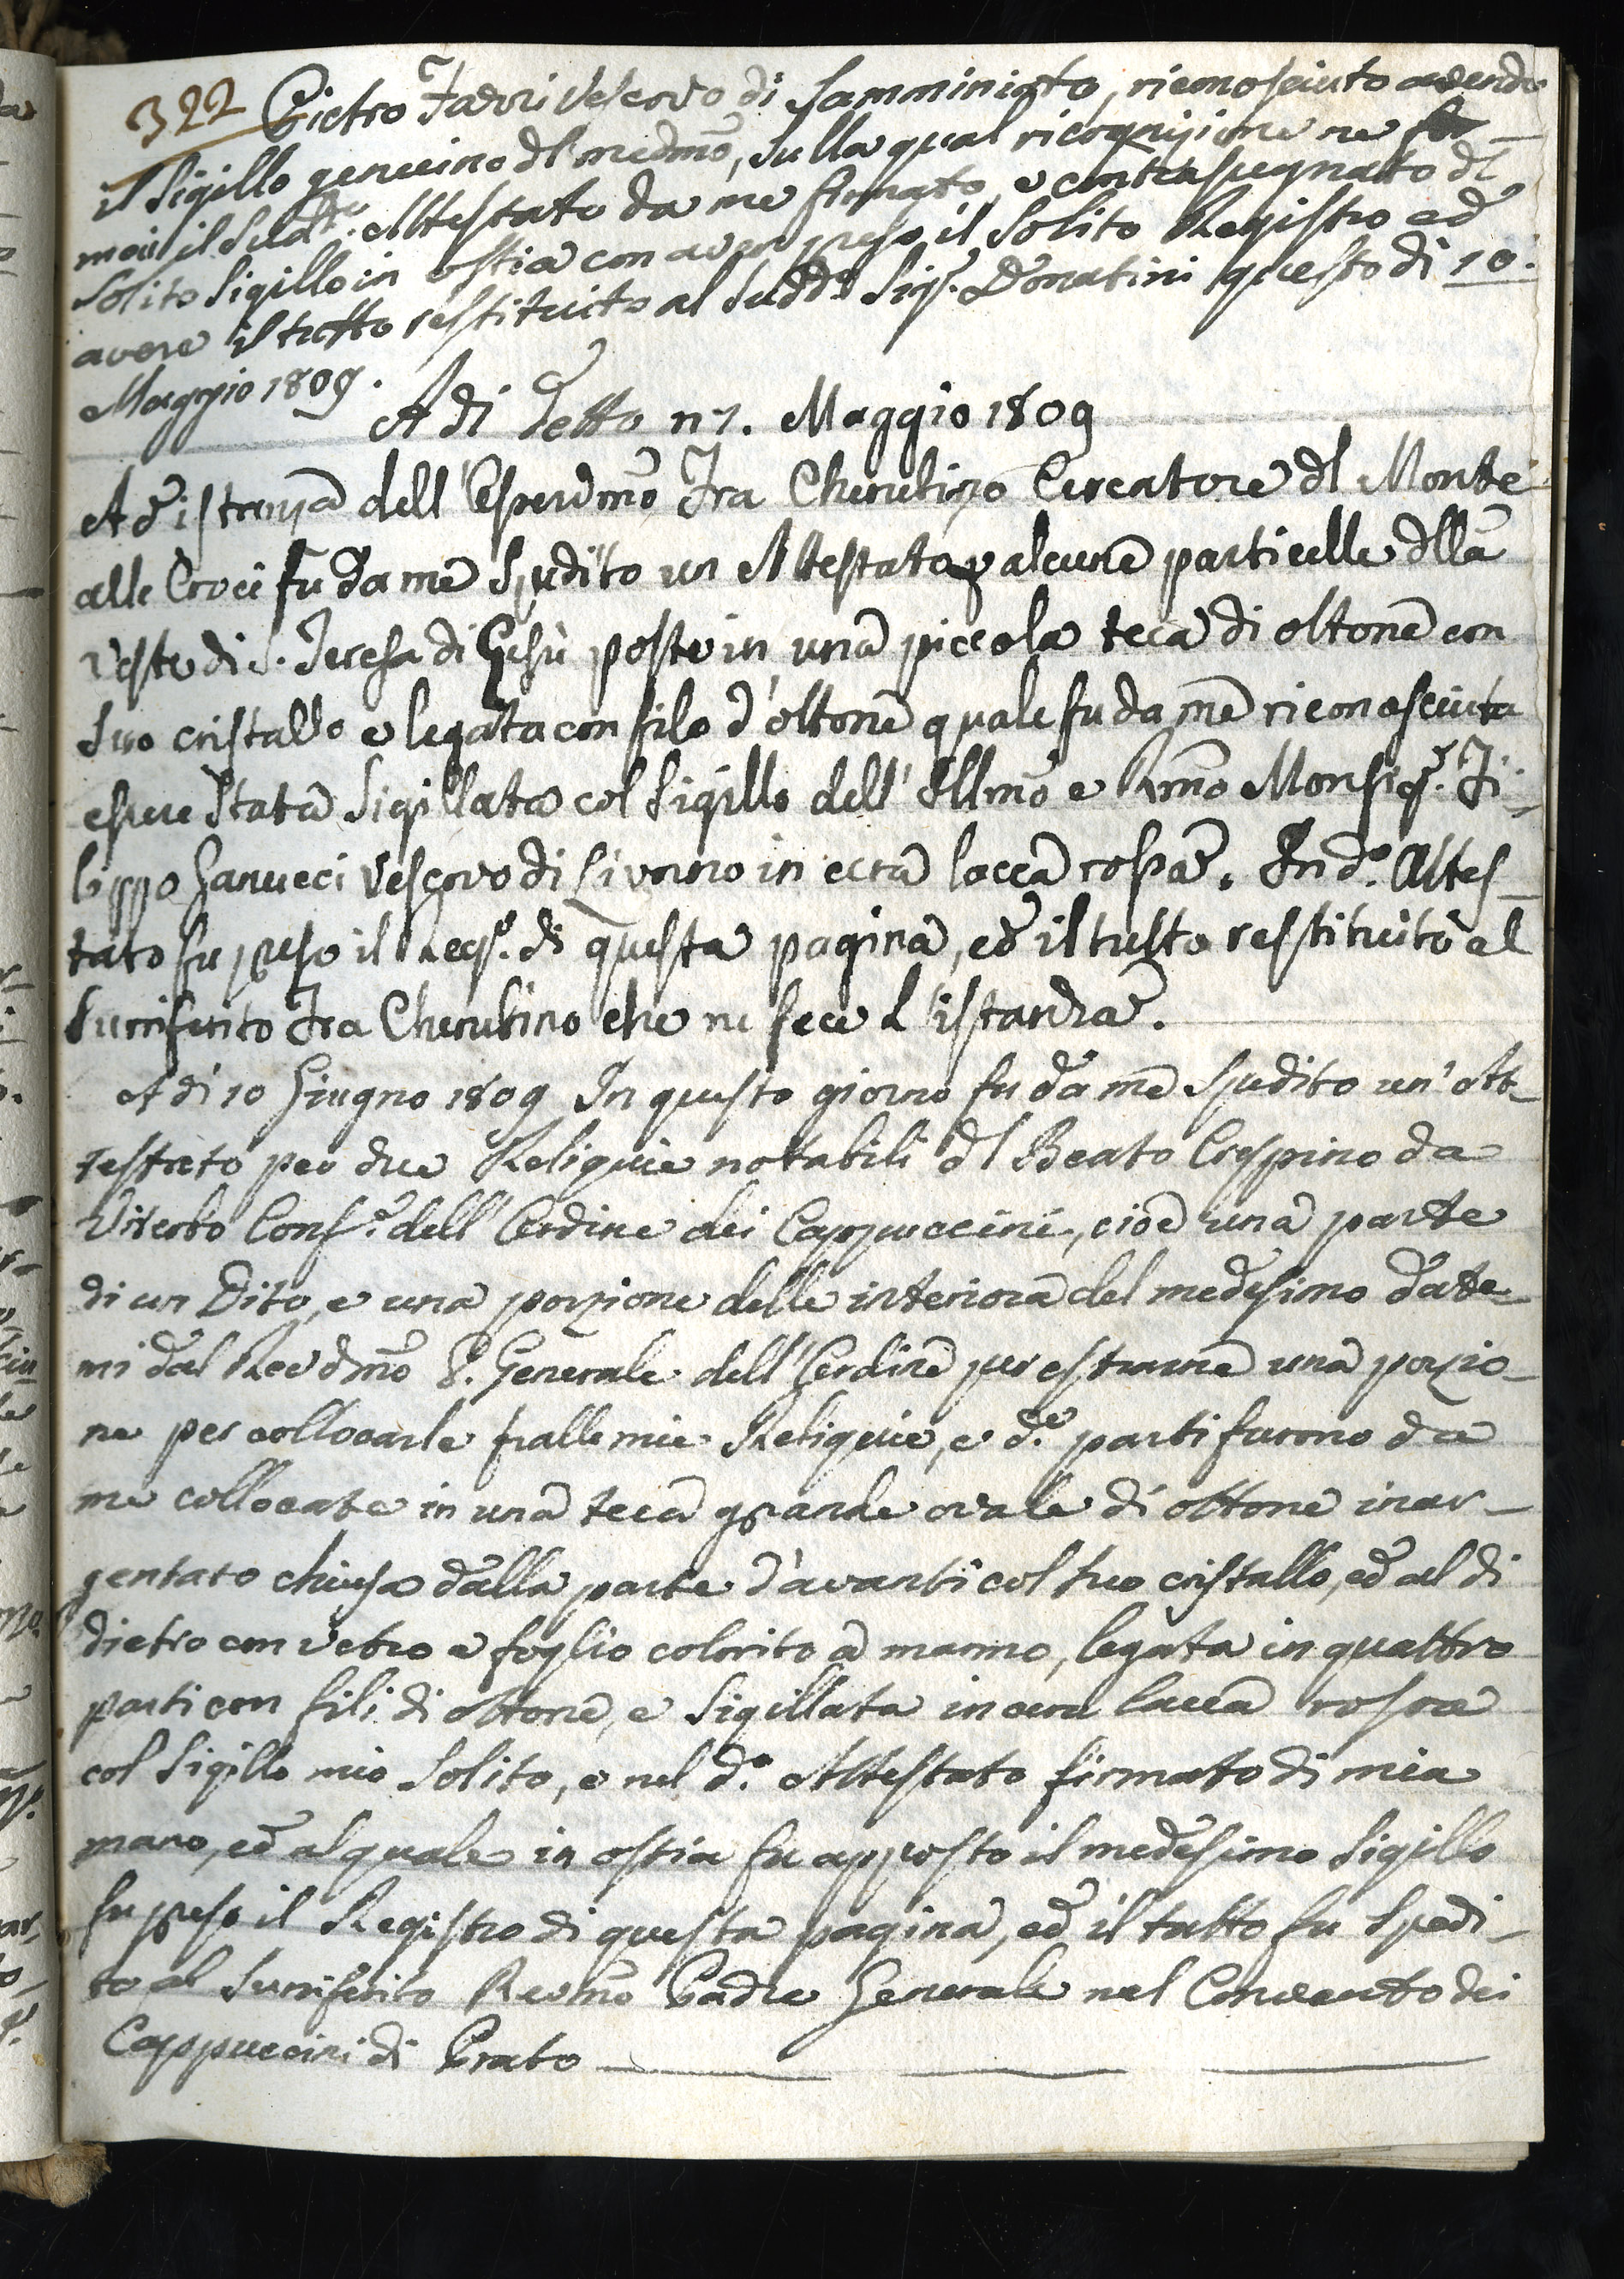 322 Pietro Fazzi Vescovo di Samminiato, riconosciuto avendo
il Sigillo genuino dl medmo, sulla qual ricognizione ne for-
mai il sudto. Attestato da me firmato, e contrasegnato dl
solito Sigillo in ostia con aver preso il solito Registro ed
avere il tutto restituito al suddo Sigr. Donatini questo di 10.
Maggio 1809.
A di detto n 1. Maggio 1809
Ad istanza dell' Osservdmo Fra Cherubino Cercatore dl Monte
alle Croci fu da me Spedito un Attestato p alcune particelle dlla
veste di S. Teresa di Gesù poste in una piccola teca di ottone con
suo cristallo e legata con filo d'ottone quale fu da me riconosciuta
essere stata Sigillata col Sigillo dell' Illmo e Rmo Monsigr. Fi-
lippo Ganucci Vescovo di Livorno in cera lacca rossa. In do. Attes-
tato fu preso il Regro. di questa pagina, ed il tutto restituito al
surriferito Fra Cherubino che ne fece l'istanza.
A di 10 Giugno 1809 In questo giorno fu da me Spedito un' Att-
testato per due Reliquie notabili dl Beato Crespino da
Viterbo Confre. dell' Ordine dei Cappuccini, cioè una parte
di un Dito, e una porzione delle interiora del medesimo date-
mi dal Revdmo P. Generale dell' Ordine per estrarne una porzio-
ne per collocarle fralle mie Reliquie, e de. parti furono da
me collocate in una teca grande ovale di ottone inar-
gentato chiusa dalla parte d'avanti col suo cristallo, ed al di
dietro con vetro e foglio colorito a marmo, legata in quattro
parti con fili di ottone, e Sigillata in cera lacca rossa
col Sigillo mio Solito, e nel do. Attestato firmato di mia
mano, ed al quale in ostia fu apposto il medesimo Sigillo
fu preso il Registro di questa pagina, ed il tutto fu Spedi-
to al surriferito Revmo Padre Generale nel Convento dei
Cappuccini di Prato